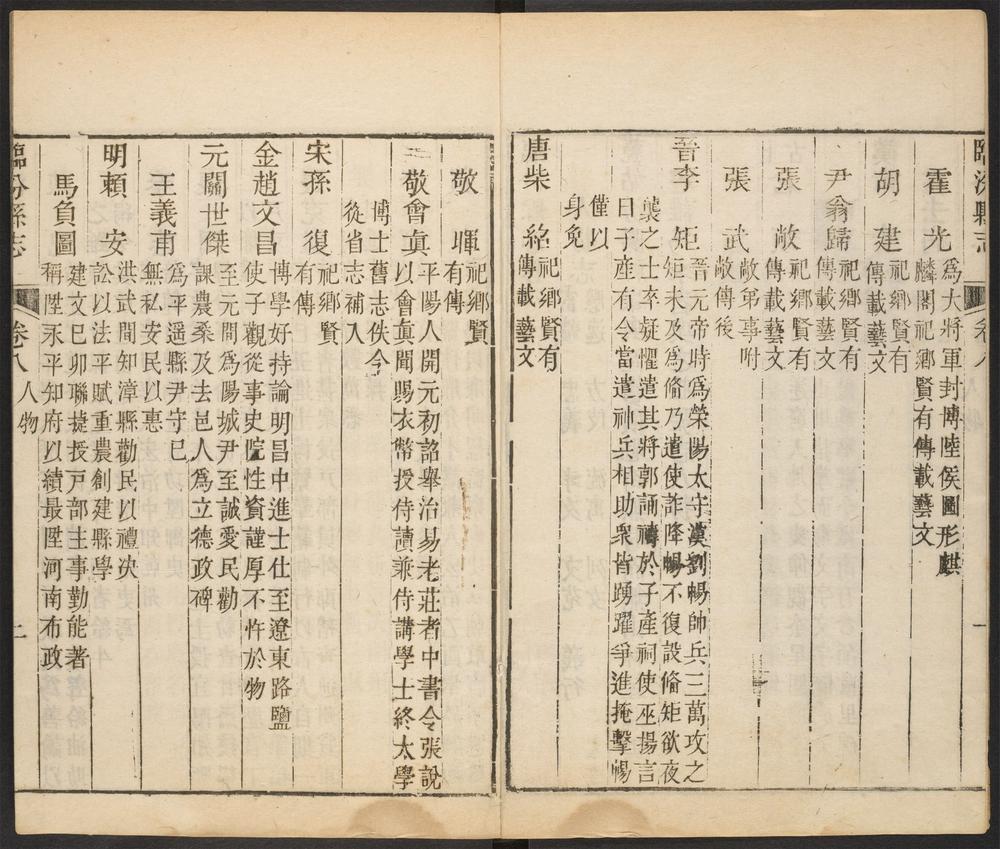 臨汾縣志
霍光
為大將軍封博陸侯圖形麒
麟閣祀鄉賢有傳載藝文
胡建
祀鄉賢有
傳載藝文
尹翁歸
祀鄉賢有
傳載藝文
張敞
祀鄉賢有
傳載藝文
張武
敞弟事附
敞傳後
晉李矩
晉元帝時爲滎陽太守漢劉暢帥兵三萬攻之
矩未及爲俻乃遣使詐降暢不復設俻矩欲夜
襲之士卒疑懼遣其將郭誦禱於子產祠使巫揚言
曰子產有令當遣神兵相助衆皆踴躍爭進掩擊暢
僅以
身免
唐柴紹
祀鄉賢有
傳載藝文
敬暉
祀鄉賢
有傳
敬會眞
平陽人開元初詔舉治易老莊者中書令張說
以會眞聞賜衣幣授侍讀兼侍講學士終太學
博士舊志佚今
從省志補入
宋孫復
祀鄉賢
有傳
金趙文昌
博學好持論明昌中進士仕至遼東路鹽
使子觀從事史院性資謹厚不忤於物
元關世傑
至元間爲陽城尹至誠愛民勸
課農桑及去邑人爲立德政碑
王義甫
爲平遥縣尹守已
無私安民以惠
明賴安
洪武間知漳縣勸民以禮决
訟以法平賦重農創建縣學
馬負圖
建文巳卯聯㨗授戸部主事勤能著
稱陞永平知府以績最陞河南布政
臨汾縣志
卷八
人物